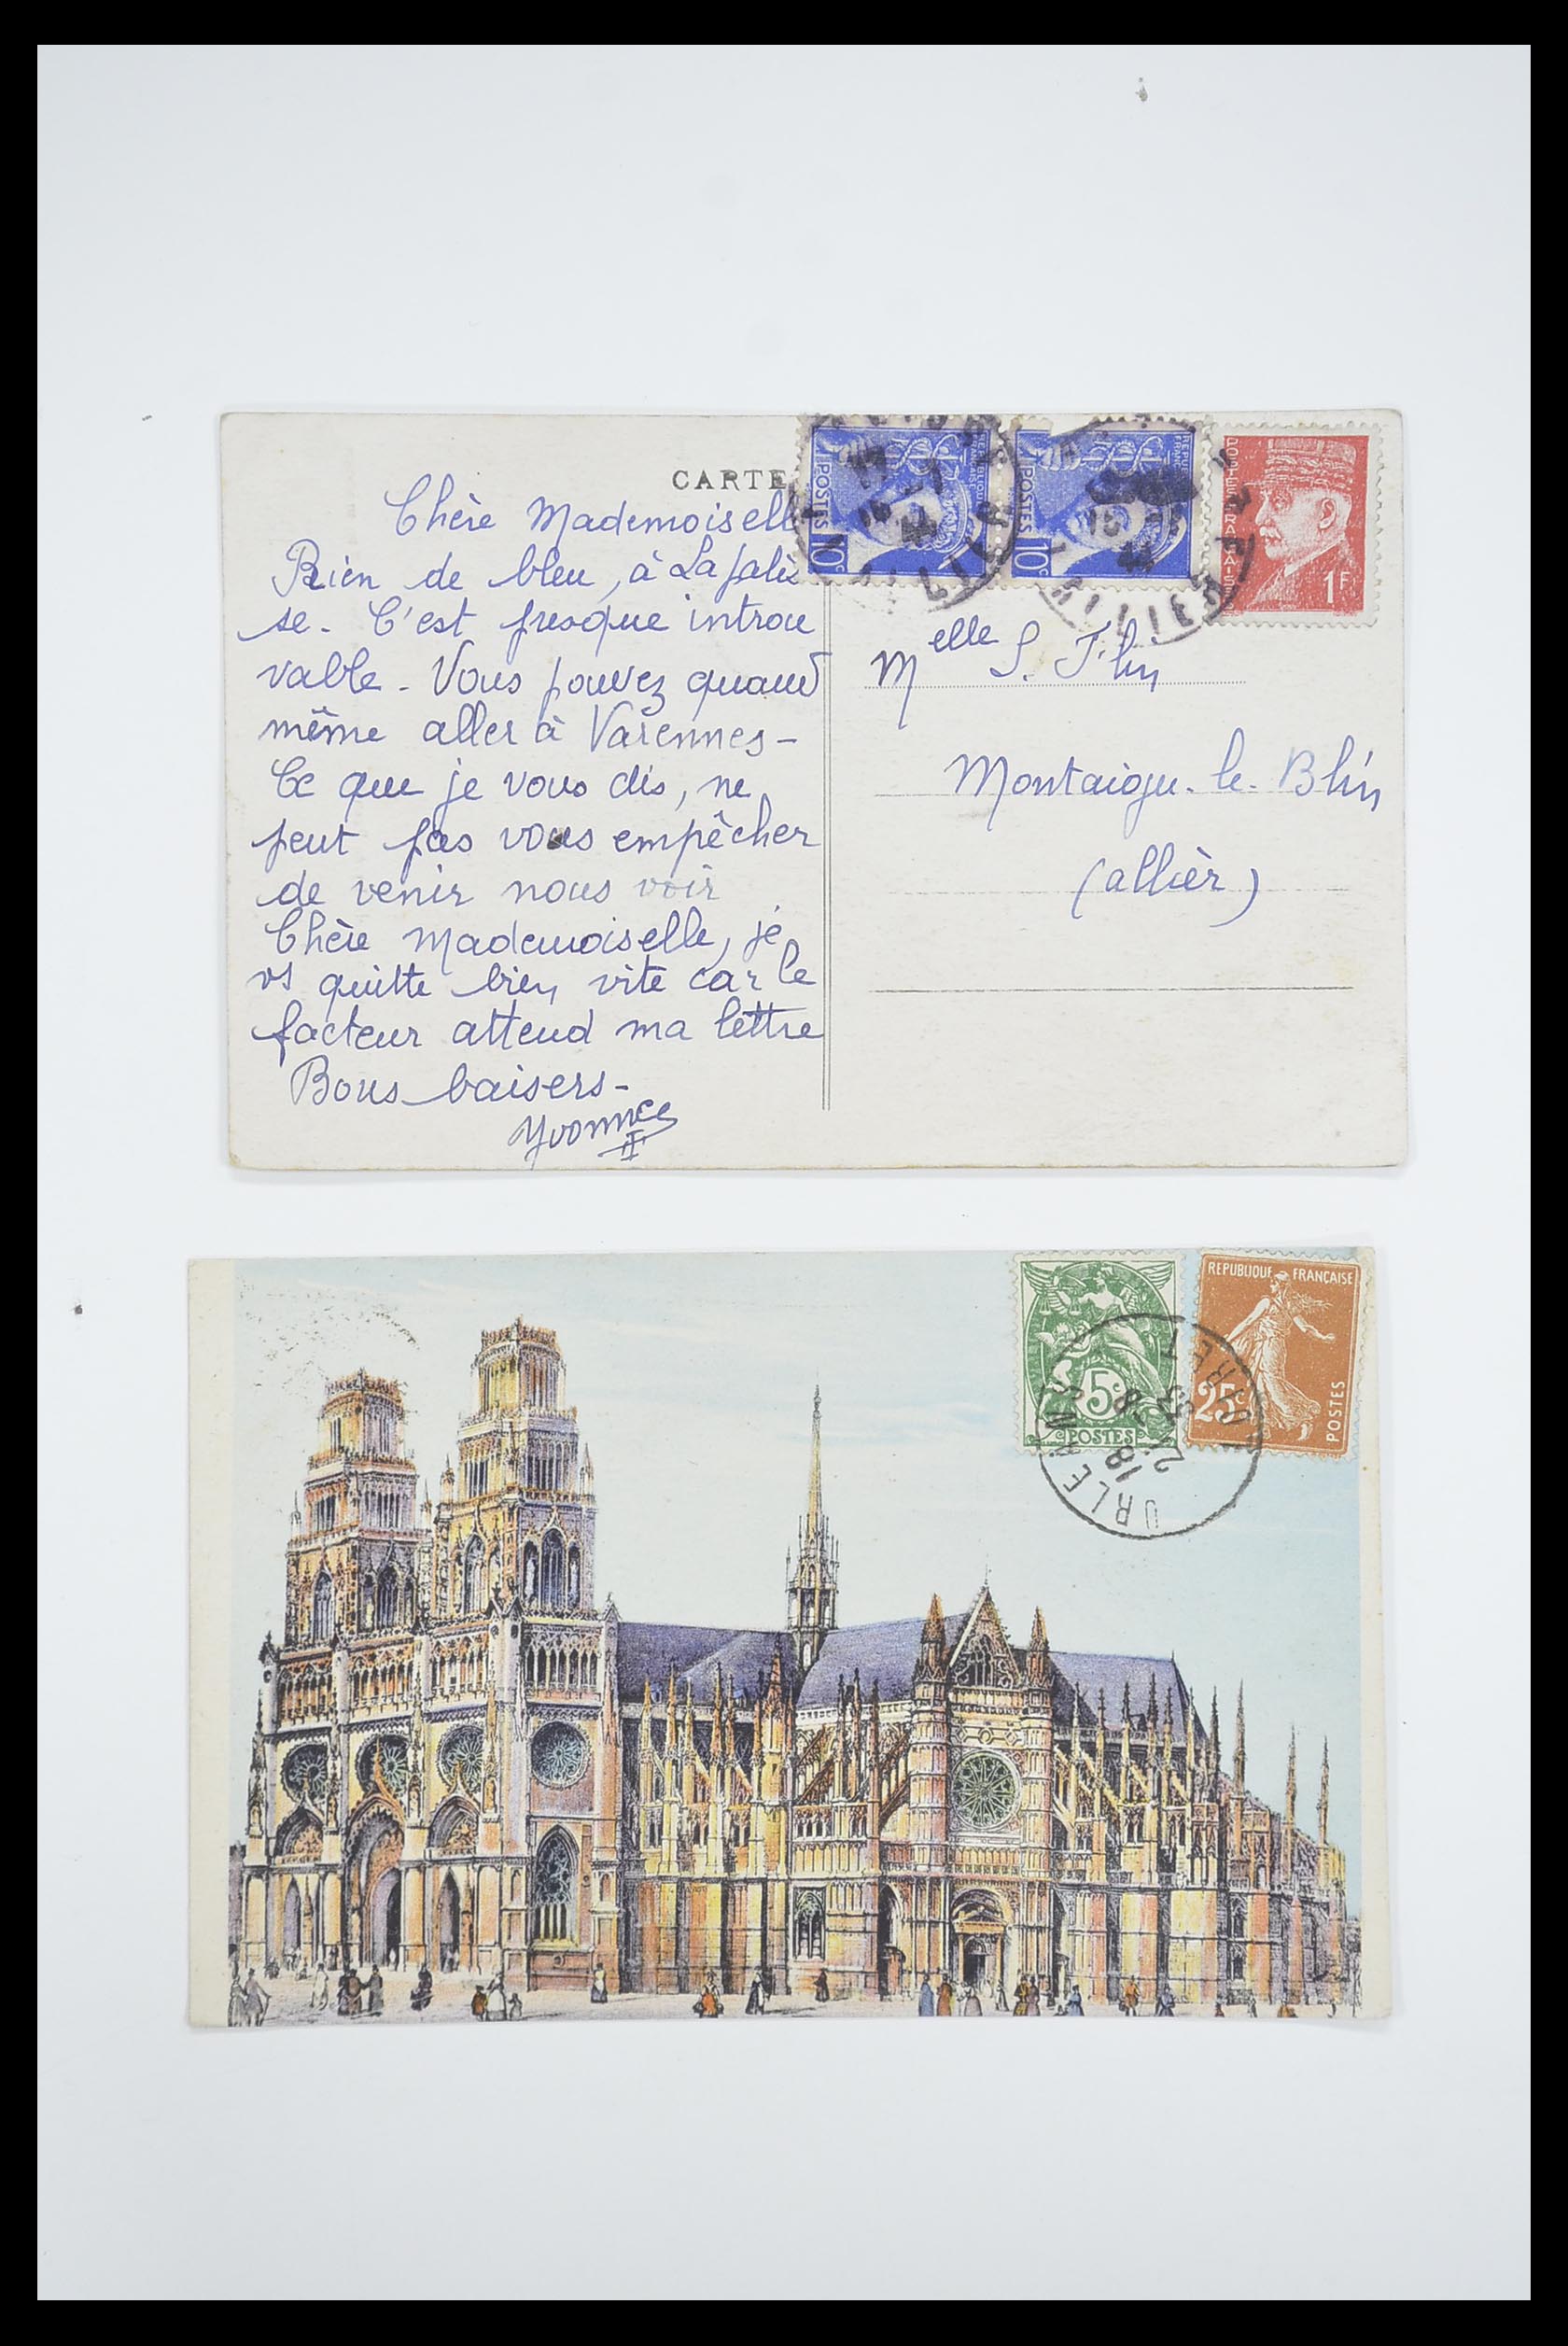 CARTE
Chère Mademoiselle
Rien de bleu, à Lapalis
se. C'est presque introu
vable. Vous pouvez quand
même aller à Varennes-
Ce que je vous dis, ne
peut pas vous empêcher
de venir nous voir
Chère Mademoiselle, je
vs quitte bien vite car le
facteur attend ma lettre
Bons baisers-
Yvonne
POSTES
10c
POSTES
10c
POSTES FRANÇAISES
1F
Melle S.
Montaigu-le-Blin
(allier)
5c
POSTES
REPUBLIQUE FRANÇAISE
25c
POSTES